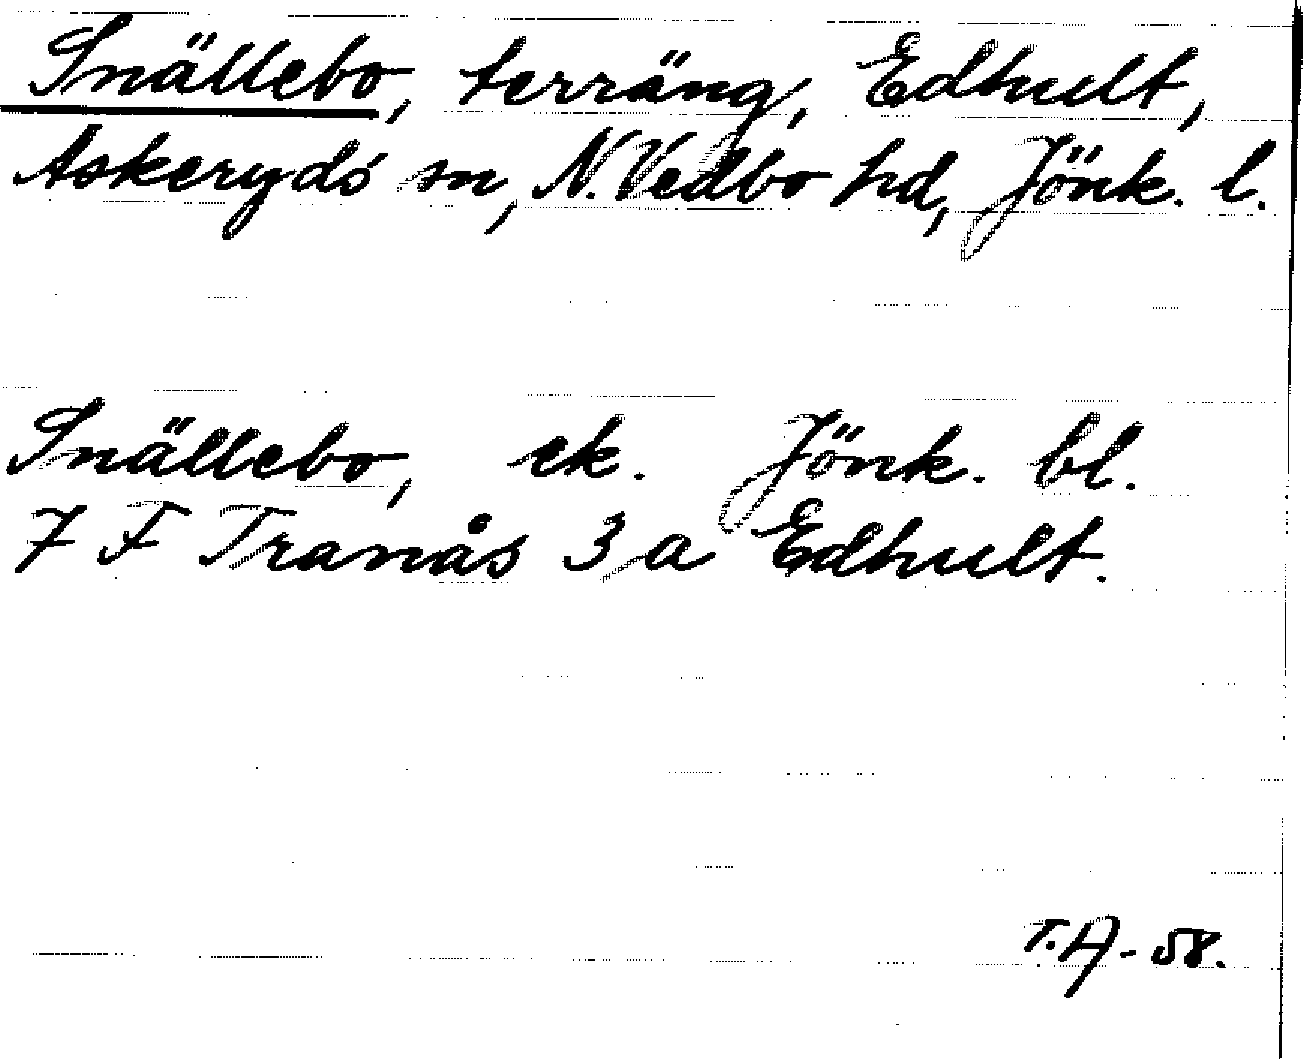 Snällebo, terräng, Edhult,
Askeryds sn, N. Vedbo hd, Jönk. l.
Snällebo, ek. Jönk. bl.
7 F Tranås 3 a Edhult.
T.A-58.